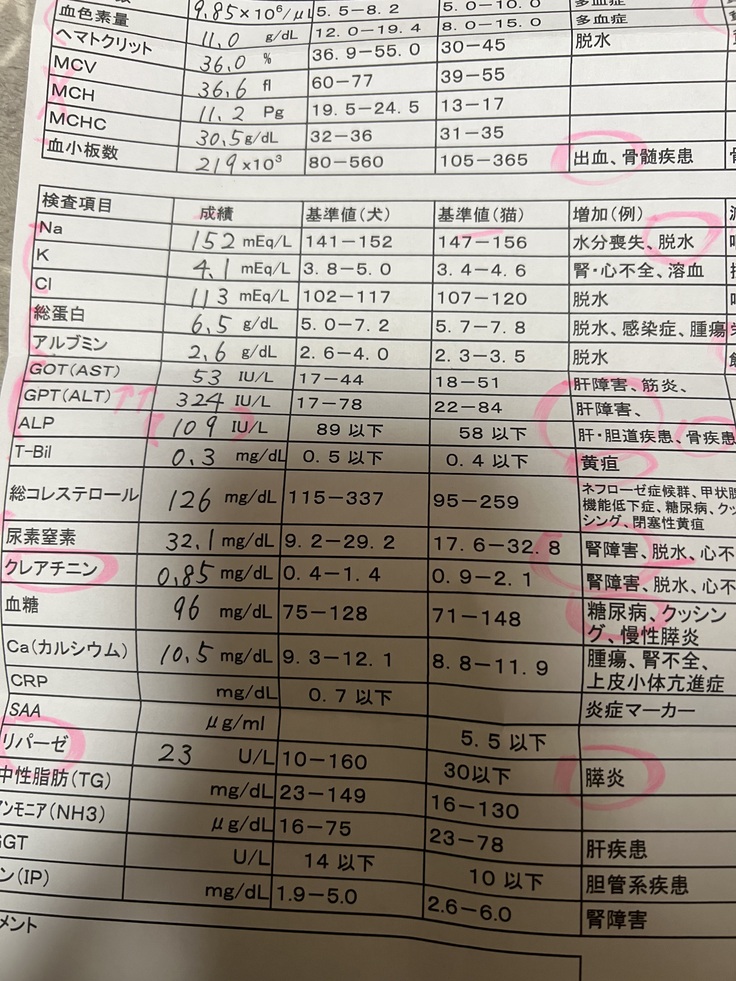 9.85×10⁶/μL 5.5－8.2 5.0－10.0 多血症
血色素量 11.0 g/dL 12.0－19.4 8.0－15.0 多血症
ヘマトクリット 36.0 % 36.9－55.0 30－45 脱水
MCV 36.6 fl 60－77 39－55
MCH 11.2 Pg 19.5－24.5 13－17
MCHC 30.5 g/dL 32－36 31－35
血小板数 219 ×10³ 80－560 105－365 出血、骨髄疾患
検査項目 成績 基準値(犬) 基準値(猫) 増加(例)
Na 152 mEq/L 141－152 147－156 水分喪失、脱水
K 4.1 mEq/L 3.8－5.0 3.4－4.6 腎・心不全、溶血
Cl 113 mEq/L 102－117 107－120 脱水
総蛋白 6.5 g/dL 5.0－7.2 5.7－7.8 脱水、感染症、腫瘍
アルブミン 2.6 g/dL 2.6－4.0 2.3－3.5 脱水
GOT(AST) 53 IU/L 17－44 18－51 肝障害、筋炎、
GPT(ALT) ↑↑ 324 IU/L 17－78 22－84 肝障害、
ALP 109 IU/L 89 以下 58 以下 肝・胆道疾患、骨疾患
T-Bil 0.3 mg/dL 0.5 以下 0.4 以下 黄疸
総コレステロール 126 mg/dL 115－337 95－259 ネフローゼ症候群、甲状腺
機能低下症、糖尿病、クッ
シング、閉塞性黄疸
尿素窒素 32.1 mg/dL 9.2－29.2 17.6－32.8 腎障害、脱水、心不
クレアチニン 0.85 mg/dL 0.4－1.4 0.9－2.1 腎障害、脱水、心不
血糖 96 mg/dL 75－128 71－148 糖尿病、クッシン
グ、慢性膵炎
Ca(カルシウム) 10.5 mg/dL 9.3－12.1 8.8－11.9 腫瘍、腎不全、
上皮小体亢進症
CRP mg/dL 0.7 以下 炎症マーカー
SAA μg/ml 5.5 以下
リパーゼ 23 U/L 10－160 30以下 膵炎
中性脂肪(TG) mg/dL 23－149 16－130
ンモニア(NH3) μg/dL 16－75 23－78 肝疾患
GGT U/L 14 以下 10 以下 胆管系疾患
ン(IP) mg/dL 1.9－5.0 2.6－6.0 腎障害
メント